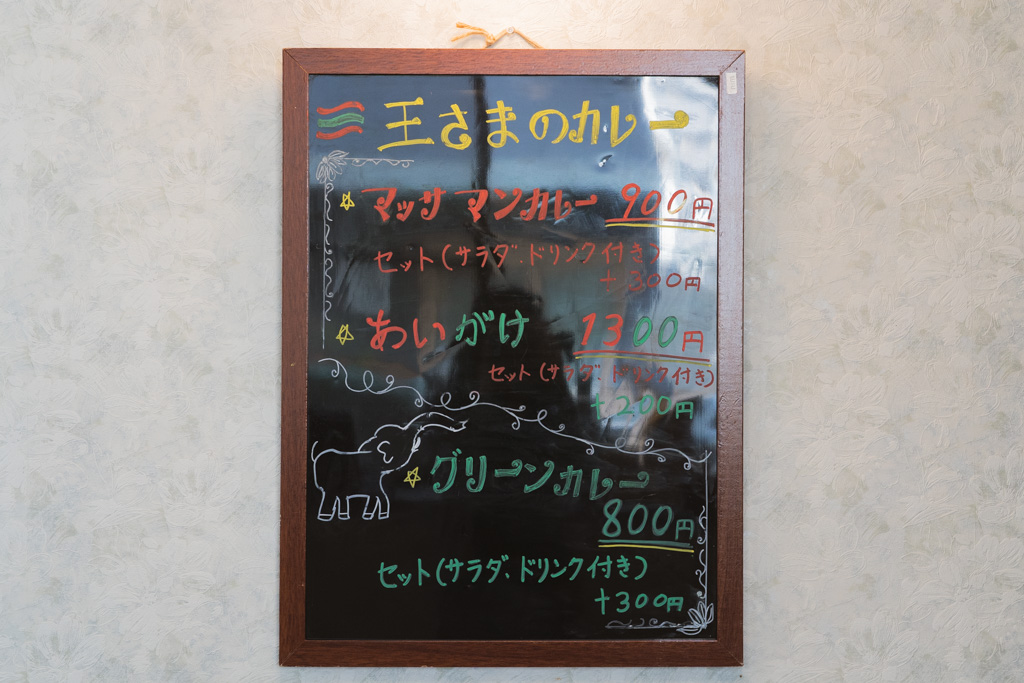 王さまのカレー
マッサマンカレー 900円
セット(サラダ、ドリンク付き)
+300円
あいがけ 1300円
セット(サラダ、ドリンク付き)
+200円
グリーンカレー
800円
セット(サラダ、ドリンク付き)
+300円